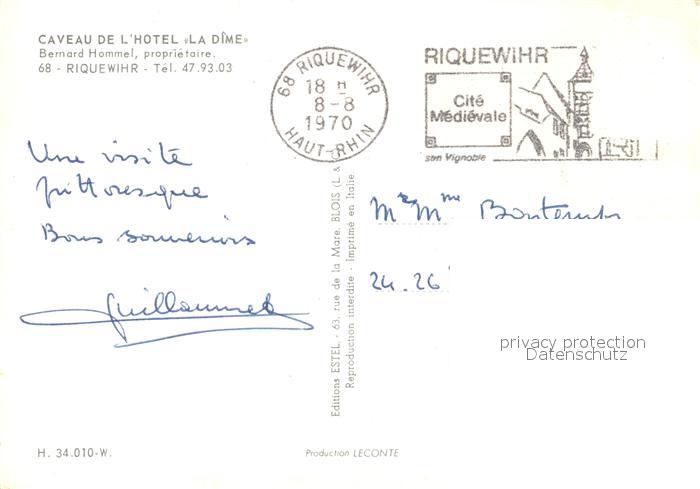 CAVEAU DE L'HOTEL «LA DÎME»
Bernard Hommel, propriétaire.
68 - RIQUEWIHR - Tél. 47.93.03
68 RIQUEWIHR
18 H
8-8
1970
HAUT-RHIN
RIQUEWIHR
Cité
Médiévale
son Vignoble
Une visite
pittoresque
Bons souvenirs
Guillaumet
Editions ESTEL - 63, rue de la Mare, BLOIS (L. &
Reproduction interdite - Imprimé en Italie
Mr Mme
24.26
privacy protection
Datenschutz
H. 34.010-W.
Production LECONTE